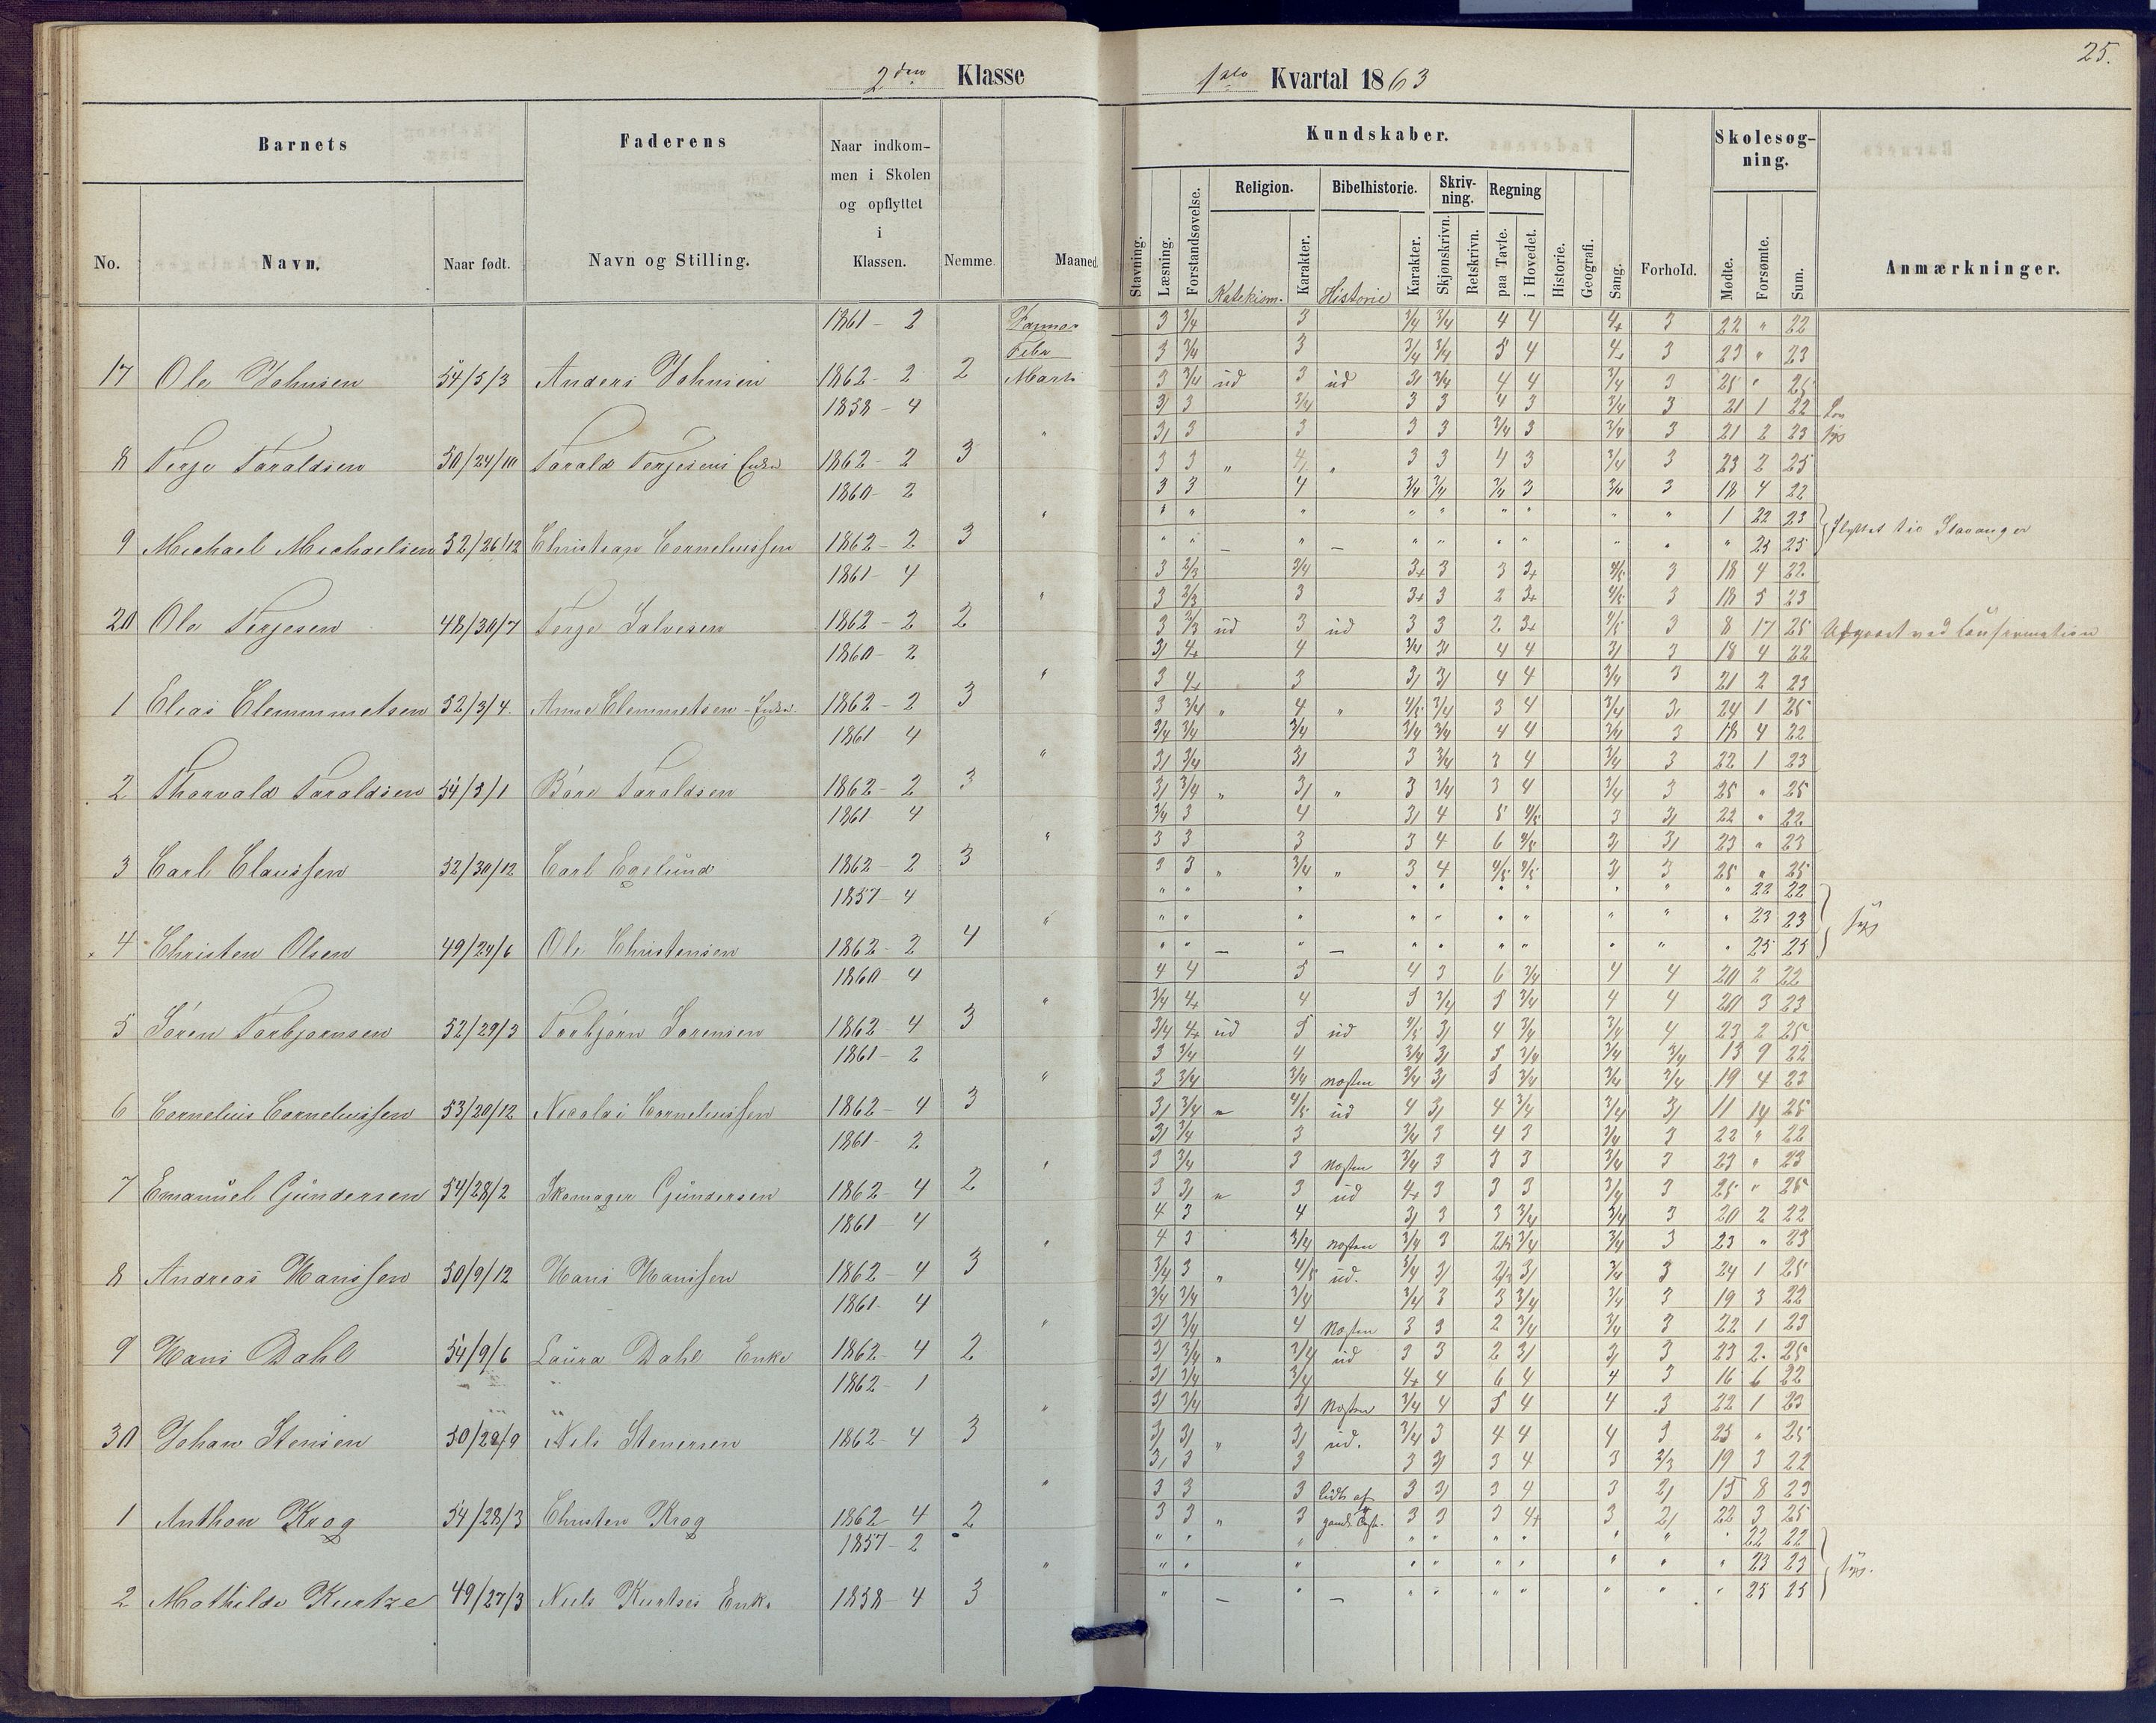 25.
2den Klasse
1ste Kvartal 1863
Barnets
Faderens
Naar indkom-
men i Skolen
og opflyttet
i
Klassen.
No.
Navn.
Naar født.
Navn og Stilling.
Nemme
Maaned
Kundskaber.
Stavning.
Læsning.
Forstandsøvelse.
Religion.
Katekism.
Karakter.
Bibelhistorie.
Historie
Karakter.
Skriv-
ning.
Skjønskrivn.
Retskrivn.
Regning
paa Tavle.
i Hovedet.
Historie.
Geografi.
Sang.
Forhold.
Skolesøg-
ning.
Mødte.
Forsømte.
Sum.
Anmærkninger.
1861 - 2 Januar 3 3/4 3 3/4 3/4 4 4 4+ 3 22 " 22
Febr 3 3/4 3 3/4 3/4 5 4 4+ 3 23 " 23
17 Ole Johnsen 54/5/3 Anders Johnsen 1862 - 2 2 Marts 3 3/4 ud 3 ud 3/ 3/4 4 4 3/4 3 25 " 25
1858 - 4 3/ 3 3/4 3 3 4 3 3/4 3 21 1 22
" 3/ 3 3 3 3 3/4 3 3/4 3 21 2 23 syg
8 Terje Taraldsen 50/24/10 Tarald Terjesens Enke 1862 - 2 3 3 3 " 4/ " 3 3 4 3 3/4 3 23 2 25
1860 - 2 3 3 4 3/4 3/4 3/4 3 3/4 3 18 4 22
" " " " " " " " " " " 1 22 23
9 Michael Michaelsen 52/26/12 Christian Corneliussen 1862 - 2 3 " " — " — " " " " " " " 25 25 Flyttet til Stavanger
1861 - 4 3 2/3 3/4 3+ 3 3 3+ 4/5 3 18 4 22
" 3 2/3 3 3+ 3 2 3+ 4/5 3 18 5 23
20 Ole Terjesen 48/30/7 Terje Salvesen 1862 - 2 2 3 2/3 ud 3 ud 3 3 2 3+ 4/5 3 8 17 25 Udgaaet ved Confirmation
1860 - 2 3/ 4+ 4 3/4 3/ 4 4 3/ 3 18 4 22
" 3 4+ 3 3/ 3/ 4 4 3/4 3 21 2 23
1 Elias Clemmetsen 52/3/4. Anne Clemmetsen - Enke 1862 - 2 3 3 3/4 " 4 " 4/5 3/4 3 4 3/4 3/ 24 1 25
1861 4 3/4 3/4 3/4 3/4 3/4 4 4 3/4 3 18 4 22
" 3/ 3/4 3/ 3 3/4 3 4 3/4 3 22 1 23
2 Thorvald Taraldsen 54/3/1 Båre Taraldsen 1862 - 2 3 3/ 3/4 " 3/ " 3 3/4 3 4 3/4 3 25 " 25
1861 4 3/4 3 4 3/ 4 5 4/5 3 3/ 22 " 22
" 3 3 3 3 4 6 4/5 3/ 3/ 23 " 23
3 Carl Claussen 52/30/12 Carl Egelund 1862 - 2 3 3 3 " 3/4 " 3 4 4/5 4/5 3/ 3 25 " 25
1857 - 4 " " " " " " " " " " 22 22
" " " " " " " " " " " 23 23
4 Christen Olsen 49/24/6 Ole Christensen 1862 - 2 4 " " — " — " " " " " " " 25 25 syg
1860 4 4 4 5 4 3 6 3/4 4 4 20 2 22
" 3/4 4+ 4 5 3/4 5 3/4 4 4 20 3 23
5 Sören Torbjörnsen 52/29/3 Torbjörn Sörensen 1862 4 3 3/4 4+ ud 5 ud 4/5 3/ 4 3/4 3/4 4 23 2 25
1861 - 2 3 3/4 4 3/4 3/ 5 3/4 3/4 3/4 13 9 22
" 3 3/4 3/4 næsten 3/4 3/ 5 3/4 3/4 3/4 19 4 23
6 Cornelius Corneliussen 53/20/12 Nicolai Corneliussen 1862 - 4 3 3/ 3/4 " 4/5 ud 4 3/ 4 3/4 3/4 3/ 11 14 25
1861 - 2 3/ 3/4 3 3/4 3 4 3 3/4 3 22 " 22
" 3 3/4 3 næsten 3/4 3 3 3 3/4 3 23 " 23
7 Emanuel Gundersen 54/28/2 Skomager Gundersen 1862 - 4 2 3 3/ " 3 ud 4+ 3 3 3 3/4 3 25 " 25
1861 - 4 4 3 4 3/ 3 3 3/4 3/4 3 20 2 22
" 4 3 3/4 næsten 3/4 3 2/3 3/4 3/4 3 23 " 23
8 Andreas Hanssen 50/9/12 Hans Hanssen 1862 - 4 3 3/4 3 " 4/5 ud. 3/4 3/ 2/3 3/ 3/4 3 24 1 25
1861 - 4 3/4 3/4 3/4 3/4 3 3 3/4 3/4 3 19 3 22
" 3/ 3/4 4 næsten 3 3 2 3/4 3/4 3 22 1 23
9 Hans Dahl 54/9/6 Laura Dahl Enke 1862 - 4 2 3/ 3/4 " 3/4 ud 3 3 2 3/ 3/ 3 23 2 25
1862 - 1 3/ 3/4 3/4 4+ 4 6 4 4 3 16 6 22
" 3/ 3/4 3/ næsten 3/4 4 5 4 4 3 22 1 23
30 Johan Stensen 50/28/9 Nils Stenersen 1862 - 4 3 3/ 3/ " 3/ ud. 3/4 3 4 4 4 3 25 " 25
3/ 3 3 3 3/ 3 4 3 2/3 19 3 22
" 3 3 3 lidt af 3 3/ 3 4 3 2/ 15 8 23
1 Anthon Krog 54/28/3 Christen Krog 1862 4 2 3 3 " 3 3 3 3 4+ 3 2/ 22 3 25
1857 - 2 " " " " " " " " " " 22 22
" " " " " " " " " " " 23 23 syg.
2 Mathilde Kurtze 49/27/3 Niels Kurtzes Enke 1858 - 4 3 " — " — " " " " " " " 25 25